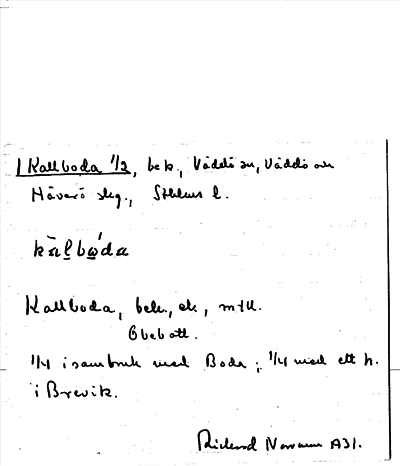 Kallboda 1/2, bek., Väddö sn, Väddö och
Häverö skg., Sthlms l.
kàlbώda
Kallboda, bek., ek, mtl.
Obebott.
1/4 i sambruk med Boda; 1/4 med ett h.
i Brevik.
Rickard Norman A31.